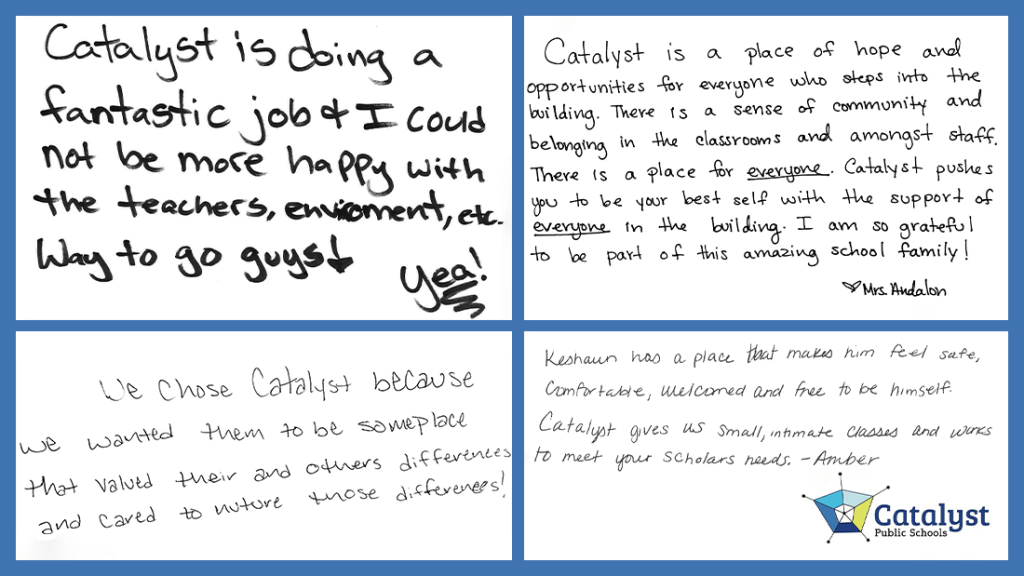 Catalyst is doing a
fantastic job & I could
not be more happy with
the teachers, enviroment, etc.
Way to go guys!
Yea!
Catalyst is a place of hope and
opportunities for everyone who steps into the
building. There is a sense of community and
belonging in the classrooms and amongst staff.
There is a place for everyone. Catalyst pushes
you to be your best self with the support of
everyone in the building. I am so grateful
to be part of this amazing school family!
Mrs. Andalon
We Chose Catalyst because
we wanted them to be someplace
that valued their and others differences
and cared to nuture those differences!
Keshaun has a place that makes him feel safe,
Comfortable, welcomed and free to be himself.
Catalyst gives us small, intimate classes and works
to meet your scholars needs. - Amber
Catalyst
Public Schools